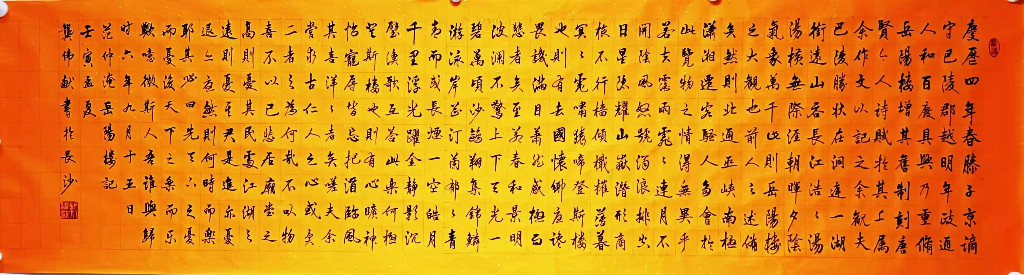 慶曆四年春滕子京謫
守巴陵郡越明年政通
人和百廢具興乃重脩
岳陽樓增其舊制刻唐
賢今人詩賦於其上屬
余作文以記之余觀夫
巴陵勝狀在洞庭一湖
銜遠山吞長江浩浩湯
湯橫無際涯朝暉夕陰
氣象萬千此則岳陽樓
之大觀也前人之述備
矣然則北通巫峽南極
瀟湘遷客騷人多會於
此覽物之情得無異乎
若夫霪雨霏霏連月不
開陰風怒號濁浪排空
日星隱耀山嶽潛形商
旅不行檣傾楫摧薄暮
冥冥虎嘯猿啼登斯樓
也則有去國懷鄉憂讒
畏譏滿目蕭然感極而
悲者矣至若春和景明
波瀾不驚上下天光一
碧萬頃沙鷗翔集錦鱗
游泳岸芷汀蘭郁郁青
青而或長煙一空皓月
千里浮光耀金靜影沉
璧漁歌互答此樂何極
登斯樓也則有心曠神
怡寵辱皆忘把酒臨風
其喜洋洋者矣嗟夫余
嘗求古仁人之心或異
二者之為何哉不以物
喜不以己悲居廟堂之
高則憂其民處江湖之
遠則憂其君是進亦憂
退亦憂然則何時而樂
耶其必曰先天下之憂
而憂後天下之樂而樂
歟噫微斯人吾誰與歸
時六年九月十五日
范仲淹岳陽樓記
壬寅孟夏
龔偉獻書於長沙